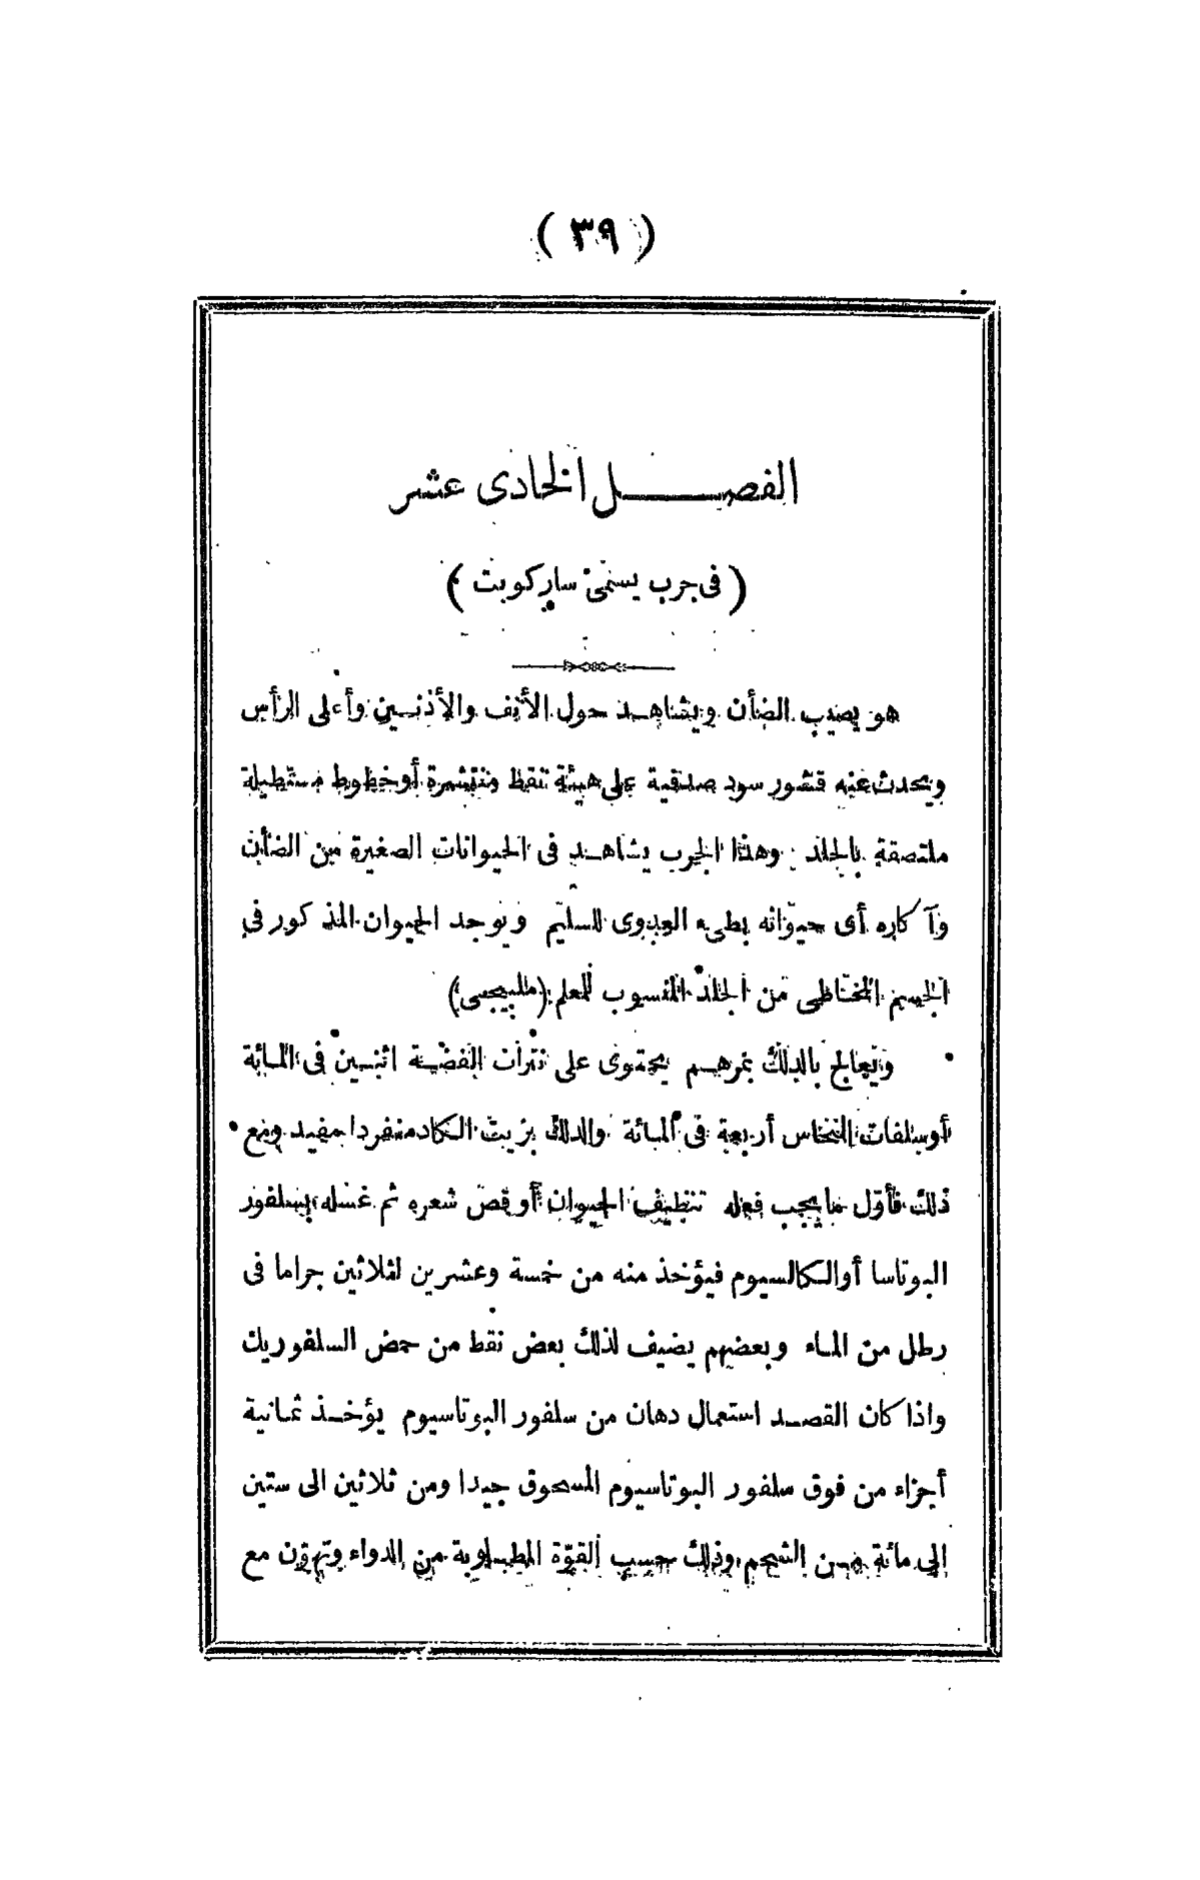 ( ٣٩ )
الفصل الحادى عشر
( فى جرب يسمى ساركوبت )
هو يصيب الضأن ويشاهد حول الأنف والأذنين وأعلى الرأس
ويحدث عنه قشور سود صدفية على هيئة نقط منتشرة أوخطوط مستطيلة
ملتصقة بالجلد وهذا الجرب يشاهد فى الحيوانات الصغيرة من الضأن
وآكاره أى حيوانه بطىء العدوى للسليم ويوجد الحيوان المذكور فى
الجسم المخاطى من الجلد المنسوب للمعلم (ملبيجى)
ويعالج بالدلك بمرهم يحتوى على نترات الفضة اثنين فى المائة
أوسلفات النحاس أربعة فى المائة والدلك بزيت الكاد منفردا مفيد ومع
ذلك فأول مايجب فعله تنظيف الحيوان أوقص شعره ثم غسله بسلفور
البوتاسا أوالكالسيوم فيؤخذ منه من خمسة وعشرين لثلاثين جراما فى
رطل من الماء وبعضهم يضيف لذلك بعض نقط من حمض السلفوريك
واذا كان القصد استعمال دهان من سلفور البوتاسيوم يؤخذ ثمانية
أجزاء من فوق سلفور البوتاسيوم المسحوق جيدا ومن ثلاثين الى ستين
الى مائة من الشحم وذلك حسب القوّة المطلوبة من الدواء وتهون مع